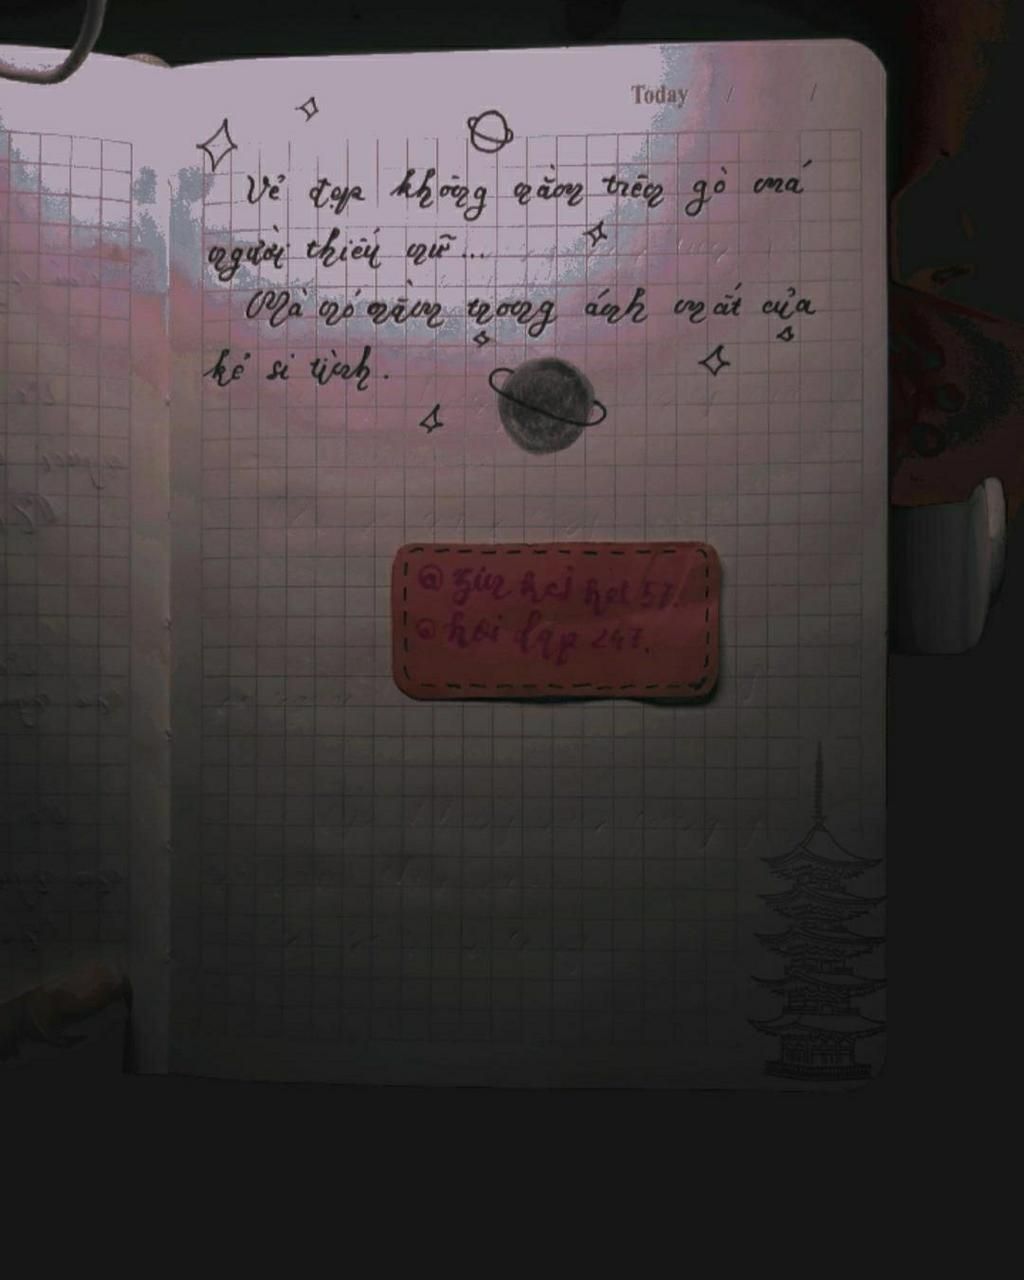 Today / /
Vẻ đẹp không nằm trên gò má
người thiếu nữ...
Mà nó nằm trong ánh mắt của
kẻ si tình.
@ zin hei hot 57.
@ hỏi đáp 247.